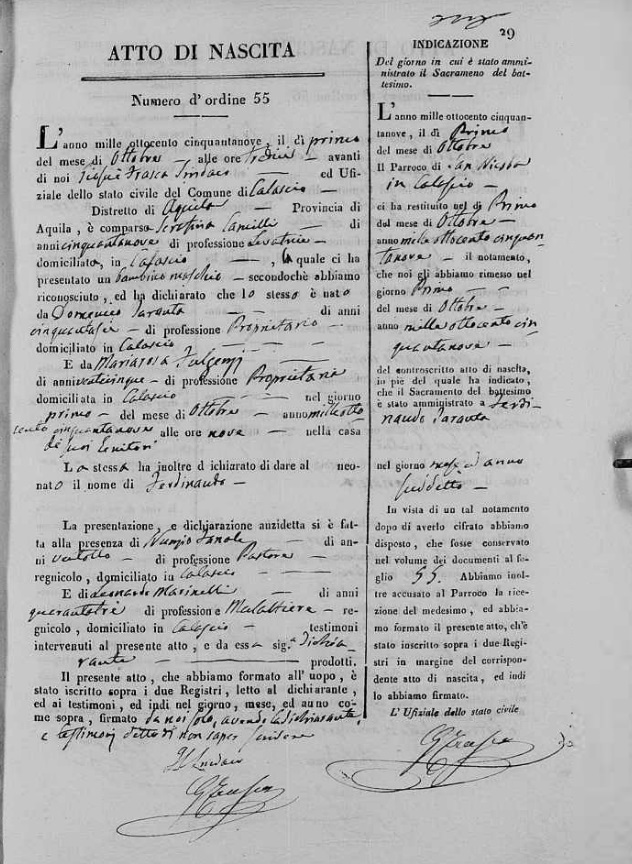 29
ATTO DI NASCITA
Numero d'ordine 55
L'anno mille ottocento cinquantanove, il dì primo
del mese di Ottobre — alle ore tredici — avanti
di noi Frasca Sindaco — ed Ufi-
ziale dello stato civile del Comune di Calascio —
Distretto di Aquila — Provincia di
Aquila, è comparsa Serafina — di
anni cinquantanove di professione Levatrice —
domiciliata, in Calascio — , la quale ci ha
presentato un bambino maschio — secondochè abbiamo
riconosciuto, ed ha dichiarato che lo stesso è nato
da Domenico Taranta — di anni
cinquantasei — di professione Proprietario —
domiciliato in Calascio —
E da Mariarosa Fulgenzj —
di anni venticinque — di professione Proprietaria
domiciliata in Calascio — nel giorno
primo — del mese di Ottobre — anno mille otto
cento cinquantanove alle ore nove — nella casa
de' suoi Genitori
La stessa ha inoltre dichiarato di dare al neo-
nato il nome di Ferdinando —
La presentazione, e dichiarazione anzidetta si è fat-
ta alla presenza di Nunzio — di an-
ni ventotto — di professione Pastore —
regnicolo, domiciliato in Calascio —
E di Leonardo Marinelli — di anni
quarantatre di professione Mulattiere — re-
gnicolo, domiciliato in Calascio — testimoni
intervenuti al presente atto, e da essa sig.ª Dichia
rante — prodotti.
Il presente atto, che abbiamo formato all'uopo, è
stato iscritto sopra i due Registri, letto al dichiarante,
ed ai testimoni, ed indi nel giorno, mese, ed anno co-
me sopra, firmato da noi solo, avendo la dichiarante,
e testimonj detto di non saper scrivere
Il Sindaco
G Frasca
INDICAZIONE
Del giorno in cui è stato ammi-
nistrato il Sacrameno del bat-
tesimo.
L'anno mille ottocento cinquan-
tanove, il dì Primo
del mese di Ottobre
Il Parroco di San Nicola
in Calascio —
ci ha restituito nel dì Primo
del mese di Ottobre —
anno mille ottocento cinquan
tanove — il notamento,
che noi gli abbiamo rimesso nel
giorno Primo —
del mese di Ottobre —
anno mille ottocento cin
quantanove —
del controscritto atto di nascita,
in piè del quale ha indicato,
che il Sacramento del battesimo
è stato amministrato a Ferdi-
nando Taranta
nel giorno mese ed anno
suddetto —
In vista di un tal notamento
dopo di averlo cifrato abbiamo
disposto, che fosse conservato
nel volume dei documenti al fo-
glio 55. Abbiamo inol-
tre accusato al Parroco la rice-
zione del medesimo, ed abbia-
mo formato il presente atto, ch'è
stato inscritto sopra i due Regi-
stri in margine del corrispon-
dente atto di nascita, ed indi
lo abbiamo firmato.
L' Ufiziale dello stato civile
G Frasca